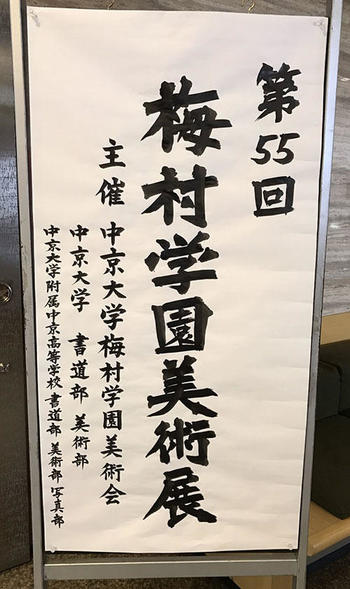 第55回
梅村学園美術展
主催 中京大学梅村学園美術会
中京大学 書道部 美術部
中京大学附属中京高等学校 書道部 美術部 写真部